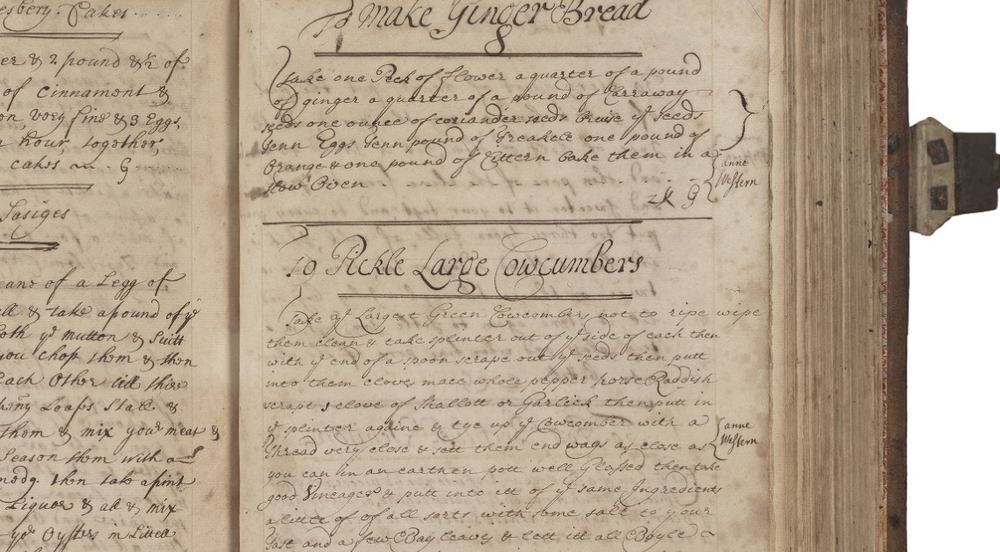 esbery Cakes
er & 2 pound & ½ of
of cinnamont &
on, very fine & 3 Eggs,
hour, together,
cakes
Sasiges
eane of a Legg of
& take a pound of ye
oth ye mutton & Suitt
you chop them & then
Each Other till thire
Loafs Stale &
them & mix your meat &
Season them with a
then take a pint
Liquor & all & mix
ye Oysters in
To make Ginger Bread
Take one Peck of flower a quarter of a pound
of ginger a quarter of a pound of Carraway
seeds one ounce of coriander seeds Bruise ye Seeds
Tenn Eggs Tenn pound of Treakele one pound of
Orange & one pound of Sittern bake them in a
slow Oven
anne
Western
To Pickle Large Cowcumbers
Take ye Largest Green Cowcumbers not to ripe wipe
them clean & take splinter out of ye side of each then
with ye end of a spoon scrape out ye seeds then putt
into them cloves mace whole pepper horse Raddish
scrapt 1 clove of Shallott or Garlick then putt in
ye splinter againe & tye up ye Cowcomber with a
thread very close & sett them end ways as close as
you can in an earthen pott well Glassed then take
good Vineager & putt into itt of ye same Ingredients
a little of of all sorts with some salt to your
tast and a few Bay leaves & lett itt all Boyle
anne
Western